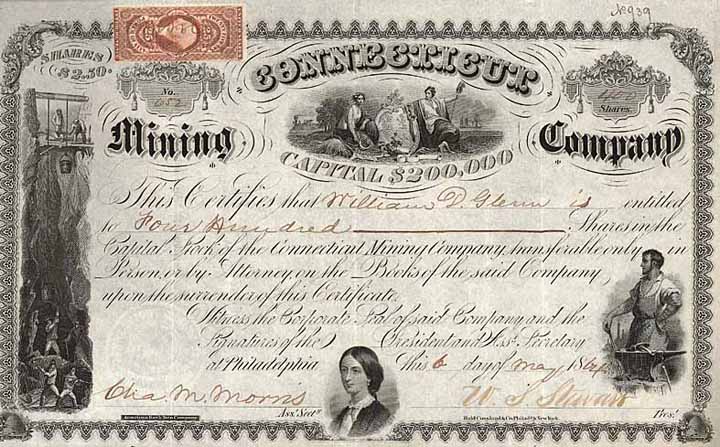 No 939
SHARES
$2.50
CONNECTICUT
No.
652
400
Shares
Mining Company
CAPITAL $200,000
This Certifies that William D. Glenn is entitled
to Four Hundred Shares in the
Capital Stock of the Connecticut Mining Company, transferable only in
Person, or by Attorney, on the Books of the said Company,
upon the surrender of this Certificate.
Witness the Corporate Seal of said Company and the
Signatures of the President and Asst. Secretary
at Philadelphia this 6 day of May 1864
Cha M. Morris Asst. Secty W. S. Stewart Prest.
American Bank Note Company.